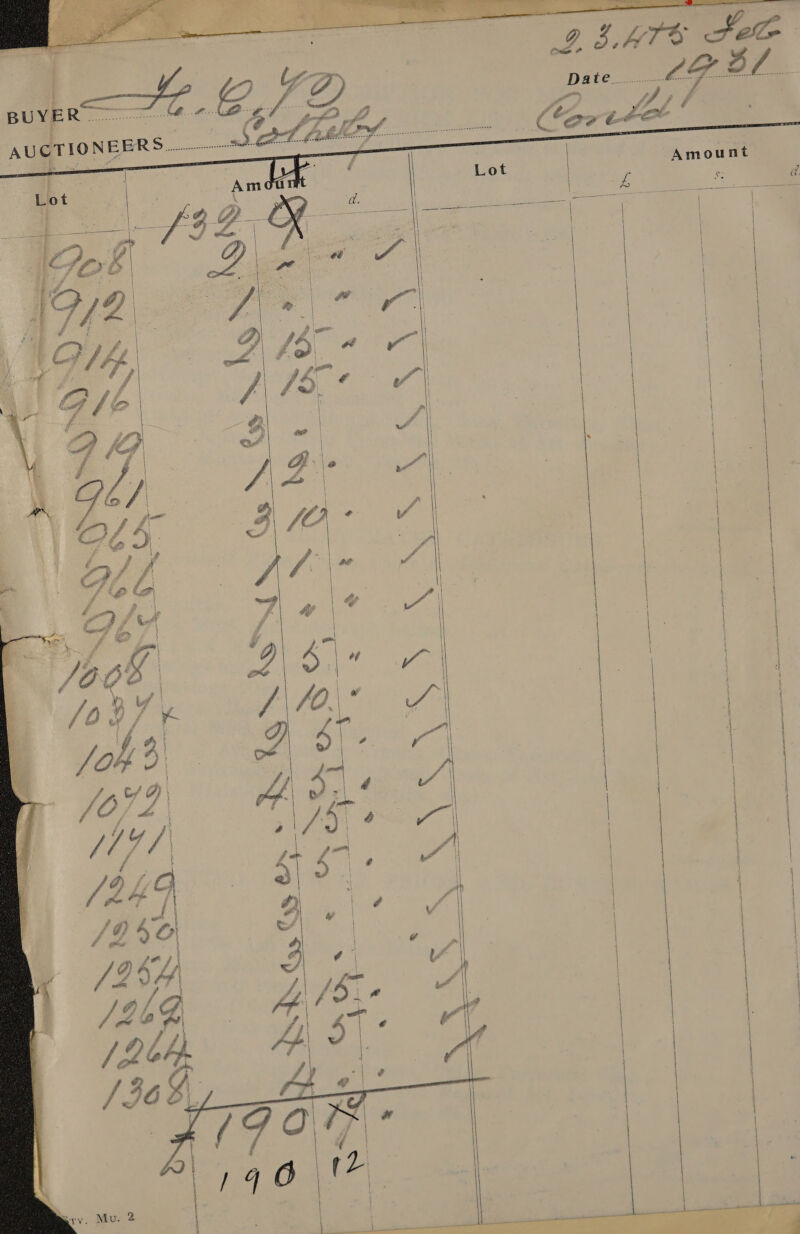 2. 3. 4th 5 Feb
Date 1931
BUYER H. C. YD
Contd
AUCTIONEERS Sotheby
Lot Amount d. Lot Amount £ s. d.
132 9 4
908 2 " " ✓
912 1 " " ✓
914 2 15 " ✓
916 1 15 " ✓
919 3 " ✓
961 1 2 " ✓
965 3 10 " ✓
966 1 1 " ✓
967 7 " " ✓
1008 2 5 " ✓
1037 x 1 10 " ✓
1043 2 5 " ✓
1072 4 5 " ✓
1171 " 15 " ✓
1249 5 5 " ✓
1250 3 " " ✓
1254 3 " " ✓
1262 4 15 " ✓
1264 4 5 " ✓
1308 4 " "
£ 190 17 "
190 12
Mu. 2